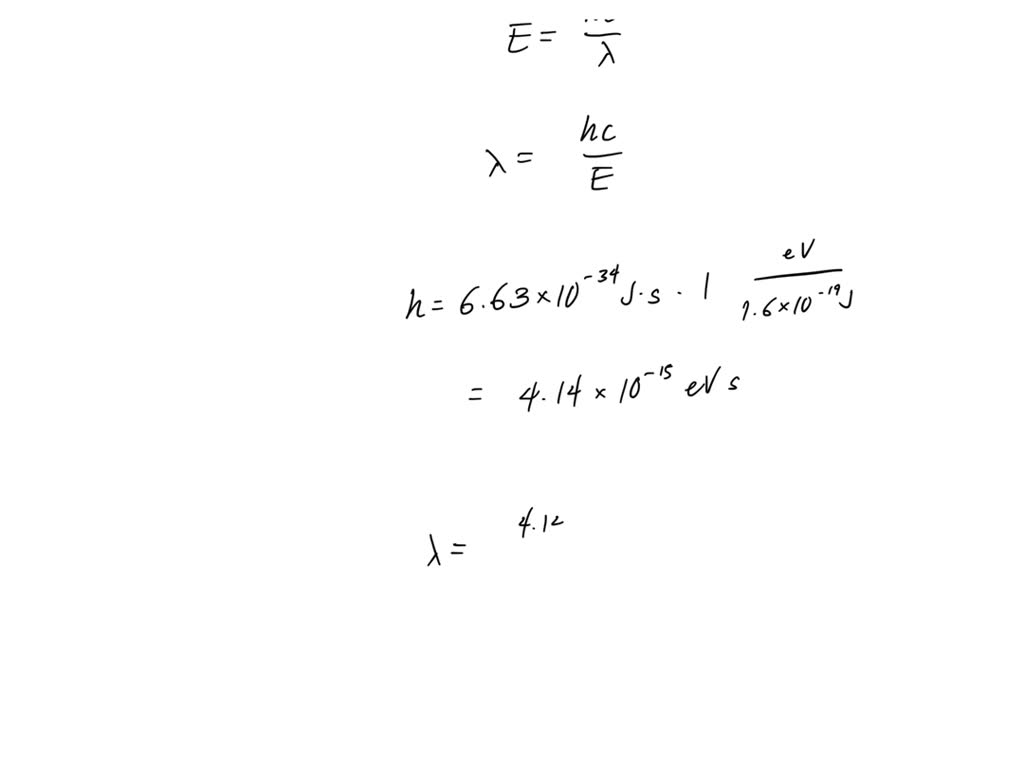 E = hc/λ
λ = hc/E
h = 6.63×10⁻³⁴ J·s · 1 eV/1.6×10⁻¹⁹J
= 4.14 × 10⁻¹⁵ eV s
λ = 4.1